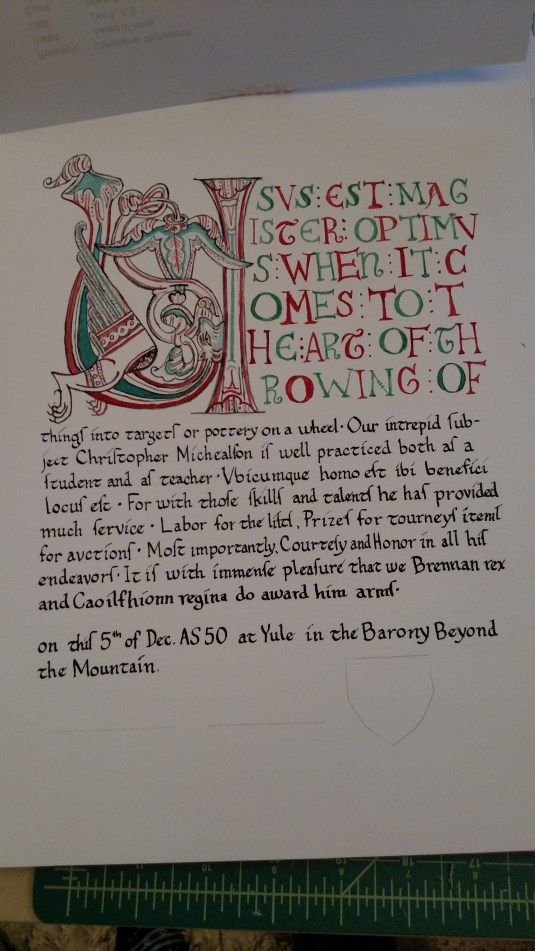 USVS:EST:MAG
ISTER:OPTIMV
S:WHEN:IT:C
OMES:TO:T
HE:ART:OF:TH
ROWING:OF
thingſ into targetſ or pottery on a wheel· Our intrepid ſub-
ject Chriſtopher Michealſon iſ well practiced both aſ a
ſtudent and aſ teacher· Vbicumque homo eſt ibi benefici
locuſ eſt · For with thoſe ſkillſ and talentſ he haſ provided
much ſervice · Labor for the liſtſ, Prizeſ for tourneyſ itemſ
for auctionſ· Moſt importantly, Courteſy and Honor in all hiſ
endeavorſ· It iſ with immenſe pleaſure that we Brennan rex
and Caoilfhionn regina do award him armſ·
on thiſ 5th of Dec. AS 50 at Yule in the Barony Beyond
the Mountain.